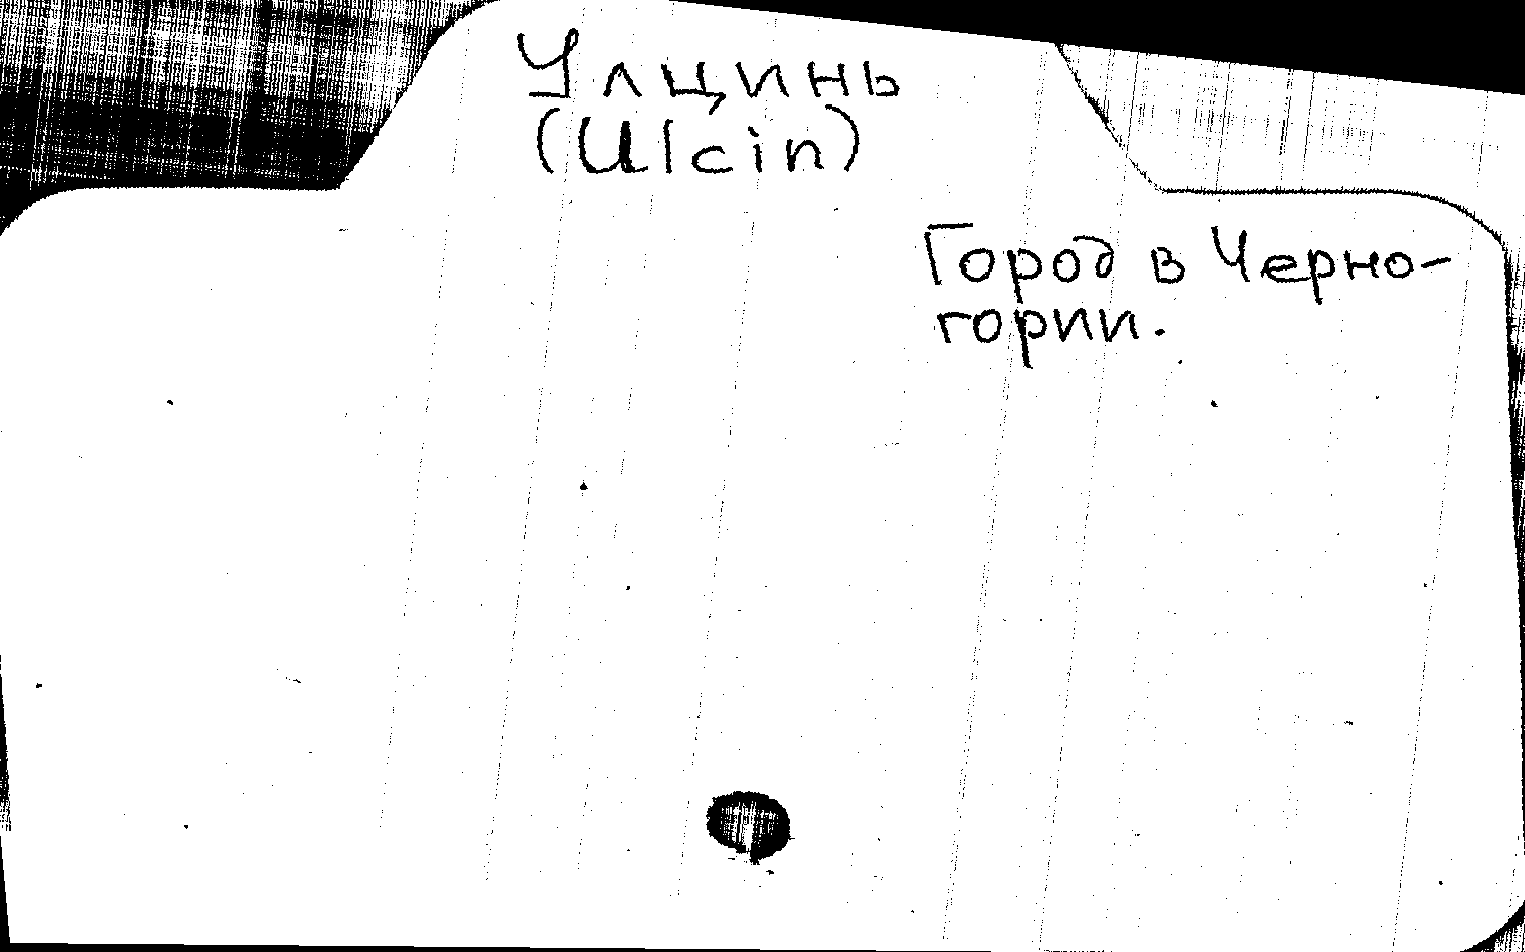 Улцинь
(Ulcin)
Город в Черно-
гории.